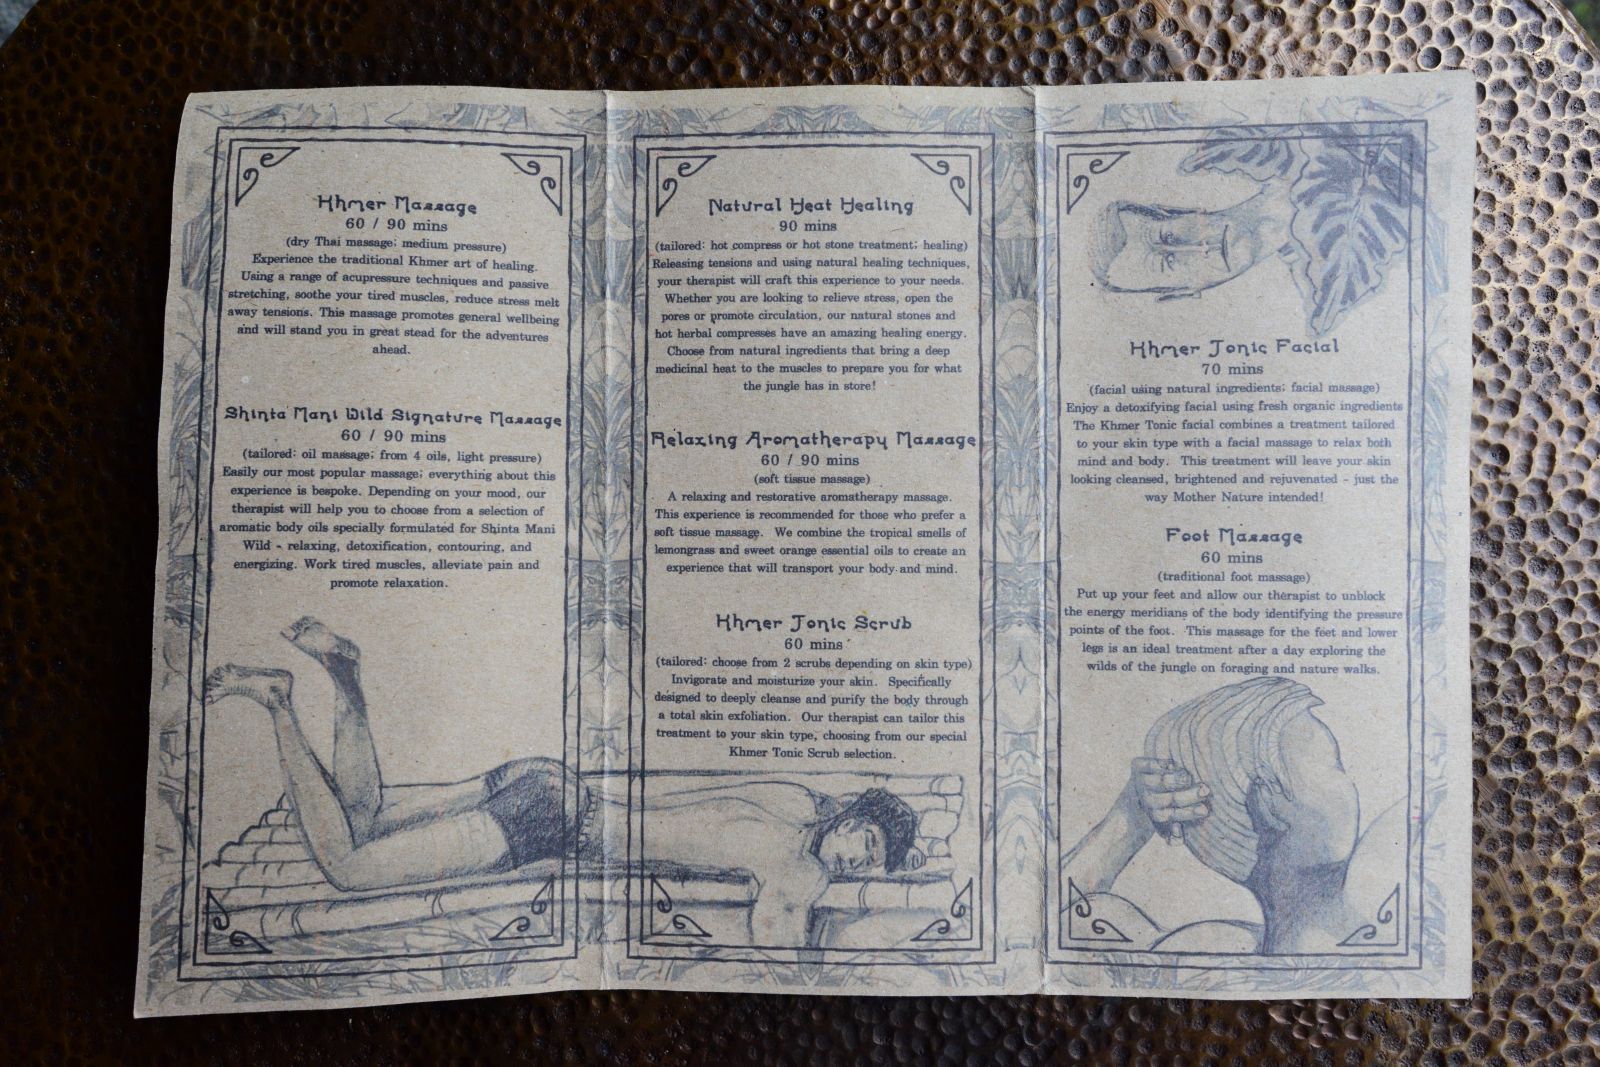 Khmer Massage
60 / 90 mins
(dry Thai massage; medium pressure)
Experience the traditional Khmer art of healing.
Using a range of acupressure techniques and passive
stretching, soothe your tired muscles, reduce stress melt
away tensions. This massage promotes general wellbeing
and will stand you in great stead for the adventures
ahead.
Shinta Mani Wild Signature Massage
60 / 90 mins
(tailored: oil massage; from 4 oils, light pressure)
Easily our most popular massage; everything about this
experience is bespoke. Depending on your mood, our
therapist will help you to choose from a selection of
aromatic body oils specially formulated for Shinta Mani
Wild - relaxing, detoxification, contouring, and
energizing. Work tired muscles, alleviate pain and
promote relaxation.
Natural Heat Healing
90 mins
(tailored: hot compress or hot stone treatment; healing)
Releasing tensions and using natural healing techniques,
your therapist will craft this experience to your needs.
Whether you are looking to relieve stress, open the
pores or promote circulation, our natural stones and
hot herbal compresses have an amazing healing energy.
Choose from natural ingredients that bring a deep
medicinal heat to the muscles to prepare you for what
the jungle has in store!
Relaxing Aromatherapy Massage
60 / 90 mins
(soft tissue massage)
A relaxing and restorative aromatherapy massage.
This experience is recommended for those who prefer a
soft tissue massage. We combine the tropical smells of
lemongrass and sweet orange essential oils to create an
experience that will transport your body and mind.
Khmer Tonic Scrub
60 mins
(tailored: choose from 2 scrubs depending on skin type)
Invigorate and moisturize your skin. Specifically
designed to deeply cleanse and purify the body through
a total skin exfoliation. Our therapist can tailor this
treatment to your skin type, choosing from our special
Khmer Tonic Scrub selection.
Khmer Tonic Facial
70 mins
(facial using natural ingredients; facial massage)
Enjoy a detoxifying facial using fresh organic ingredients
The Khmer Tonic facial combines a treatment tailored
to your skin type with a facial massage to relax both
mind and body. This treatment will leave your skin
looking cleansed, brightened and rejuvenated - just the
way Mother Nature intended!
Foot Massage
60 mins
(traditional foot massage)
Put up your feet and allow our therapist to unblock
the energy meridians of the body identifying the pressure
points of the foot. This massage for the feet and lower
legs is an ideal treatment after a day exploring the
wilds of the jungle on foraging and nature walks.